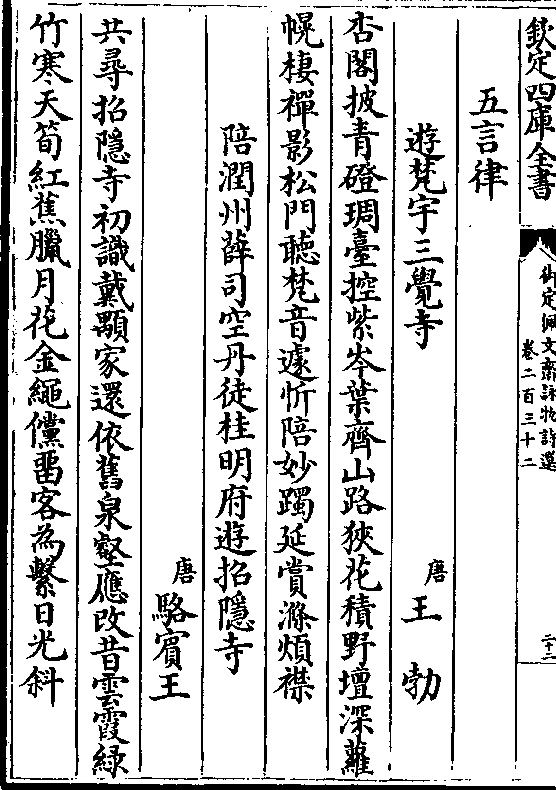 欽定四庫全書
御定佩文齋詠物詩選
卷二百三十二
三十二
五言律
遊梵宇三覺寺
唐 王 勃
杏閣披青磴琱臺控紫岑葉齊山路狹花積野壇深蘿
幌棲禪影松門聽梵音遽忻陪妙躅延賞滌煩襟
陪潤州薛司空丹徒桂明府遊招隱寺
唐 駱賓王
共尋招隱寺初識戴顒家還依舊泉壑應改昔雲霞綠
竹寒天筍紅蕉臘月花金繩儻留客為繫日光斜